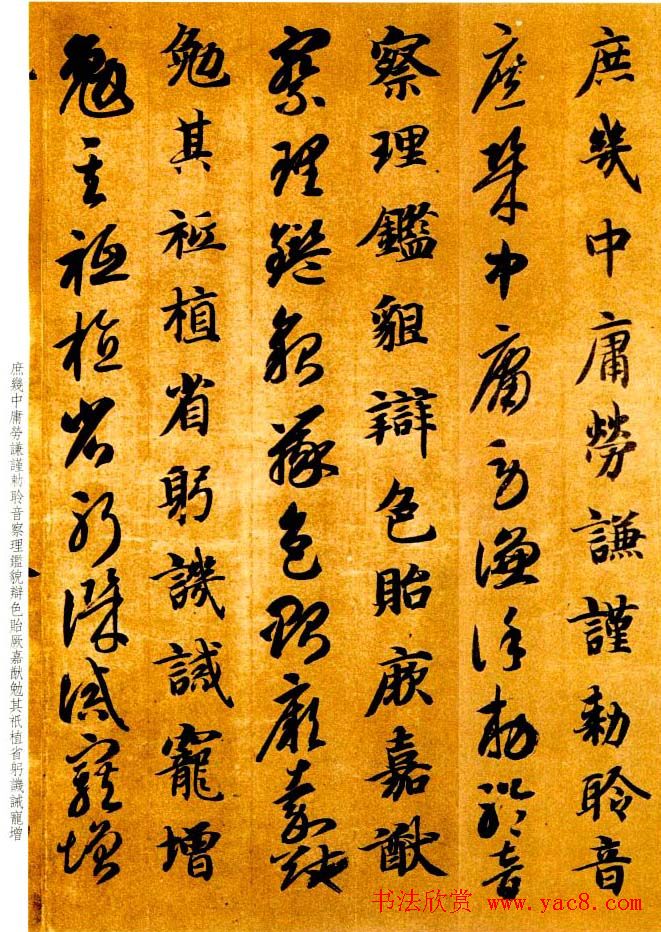 庶幾中庸勞謙謹勅聆音
庶幾中庸勞謙謹勅聆音
察理鑑貌辯色貽厥嘉猷
察理鑑貌辯色貽厥嘉猷
勉其祗植省躬譏誡寵增
勉其祗植省躬譏誡寵增
庶幾中庸勞謙謹勅聆音察理鑑貌辯色貽厥嘉猷勉其祇植省躬譏誡寵增
书法欣赏 www.yac8.com